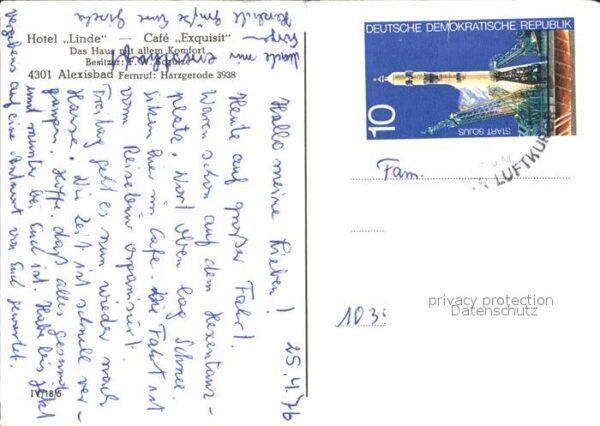 Hotel „Linde" — Café „Exquisit"
Das Haus mit allem Komfort
Besitzer: F. W. Schulze
4301 Alexisbad Fernruf: Harzgerode 3938
25.4.76
Hallo meine Lieben!
Heute auf großer Fahrt.
Waren schon auf dem Hexentanz-
platz. Dort oben lag Schnee.
sitzen hier im Cafe. Die Fahrt ist
vom Reisebüro organisiert.
Freitag geht es nun wieder nach
Hause. Die Zeit ist schnell ver-
gangen. Hoffe, daß alles gesund
und munter bei Euch ist. Habe bis jetzt
vergebens auf eine Antwort von Euch gewartet.
Herzliche Grüße Eure
IV/18/5
DEUTSCHE DEMOKRATISCHE REPUBLIK
10
START SOJUS
LUFTKUR
Fam.
103
privacy protection
Datenschutz